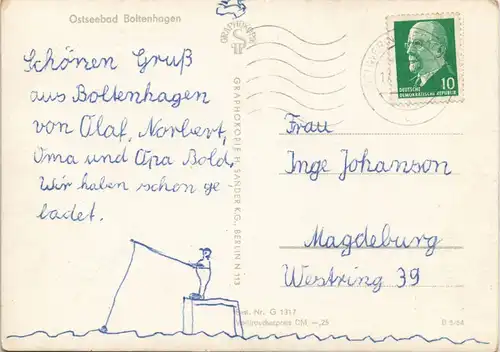 Ostseebad Boltenhagen
Schönen Gruß
aus Boltenhagen
von Olaf, Norbert,
Oma und Opa Bold.
Wir haben schon ge
badet.
GRAPHOKOPIE H. SANDER KG., BERLIN N 113
10
DEUTSCHE
DEMOKRATISCHE REPUBLIK
Frau
Inge Johanson
Magdeburg
Westring 39
Nr. G 1317
DM –,25